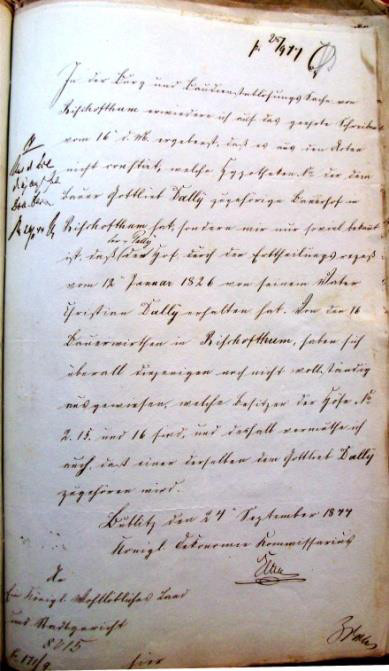 In der Burg und Baudienstablösungs Sache von
Bischofthum erwiedere ich auf das geehrte Schreiben
vom 16t d. M. ergebenst, daß es aus den Acten
nicht constirt, welche Hypotheken No der dem
Bauer Gottlieb Dally zugehörige Bauerhof in
Bischofthum hat, sondern mir nur soviel bekannt
ist, daß der Hof durch den Erbtheilungs rezeß
der p Dally
vom 12t Januar 1826 von seinem Vater
Christian Dally erhalten hat. Von den 16
Bauerwirthen in Bischofthum, haben sich
überall diejenigen noch nicht vollständig
ausgewiesen, welche Besitzer der Höfe No
2. 15. und 16 sind, und deshalb vermuthe ich
auch, daß einer derselben dem Gottlieb Dally
zugehören wird.
Bublitz den 24t September 1844
Königl. Oekonomie Kommissarius
An
Ein Königl. Wohllöbliches Land
und Stadtgericht
8215
hier